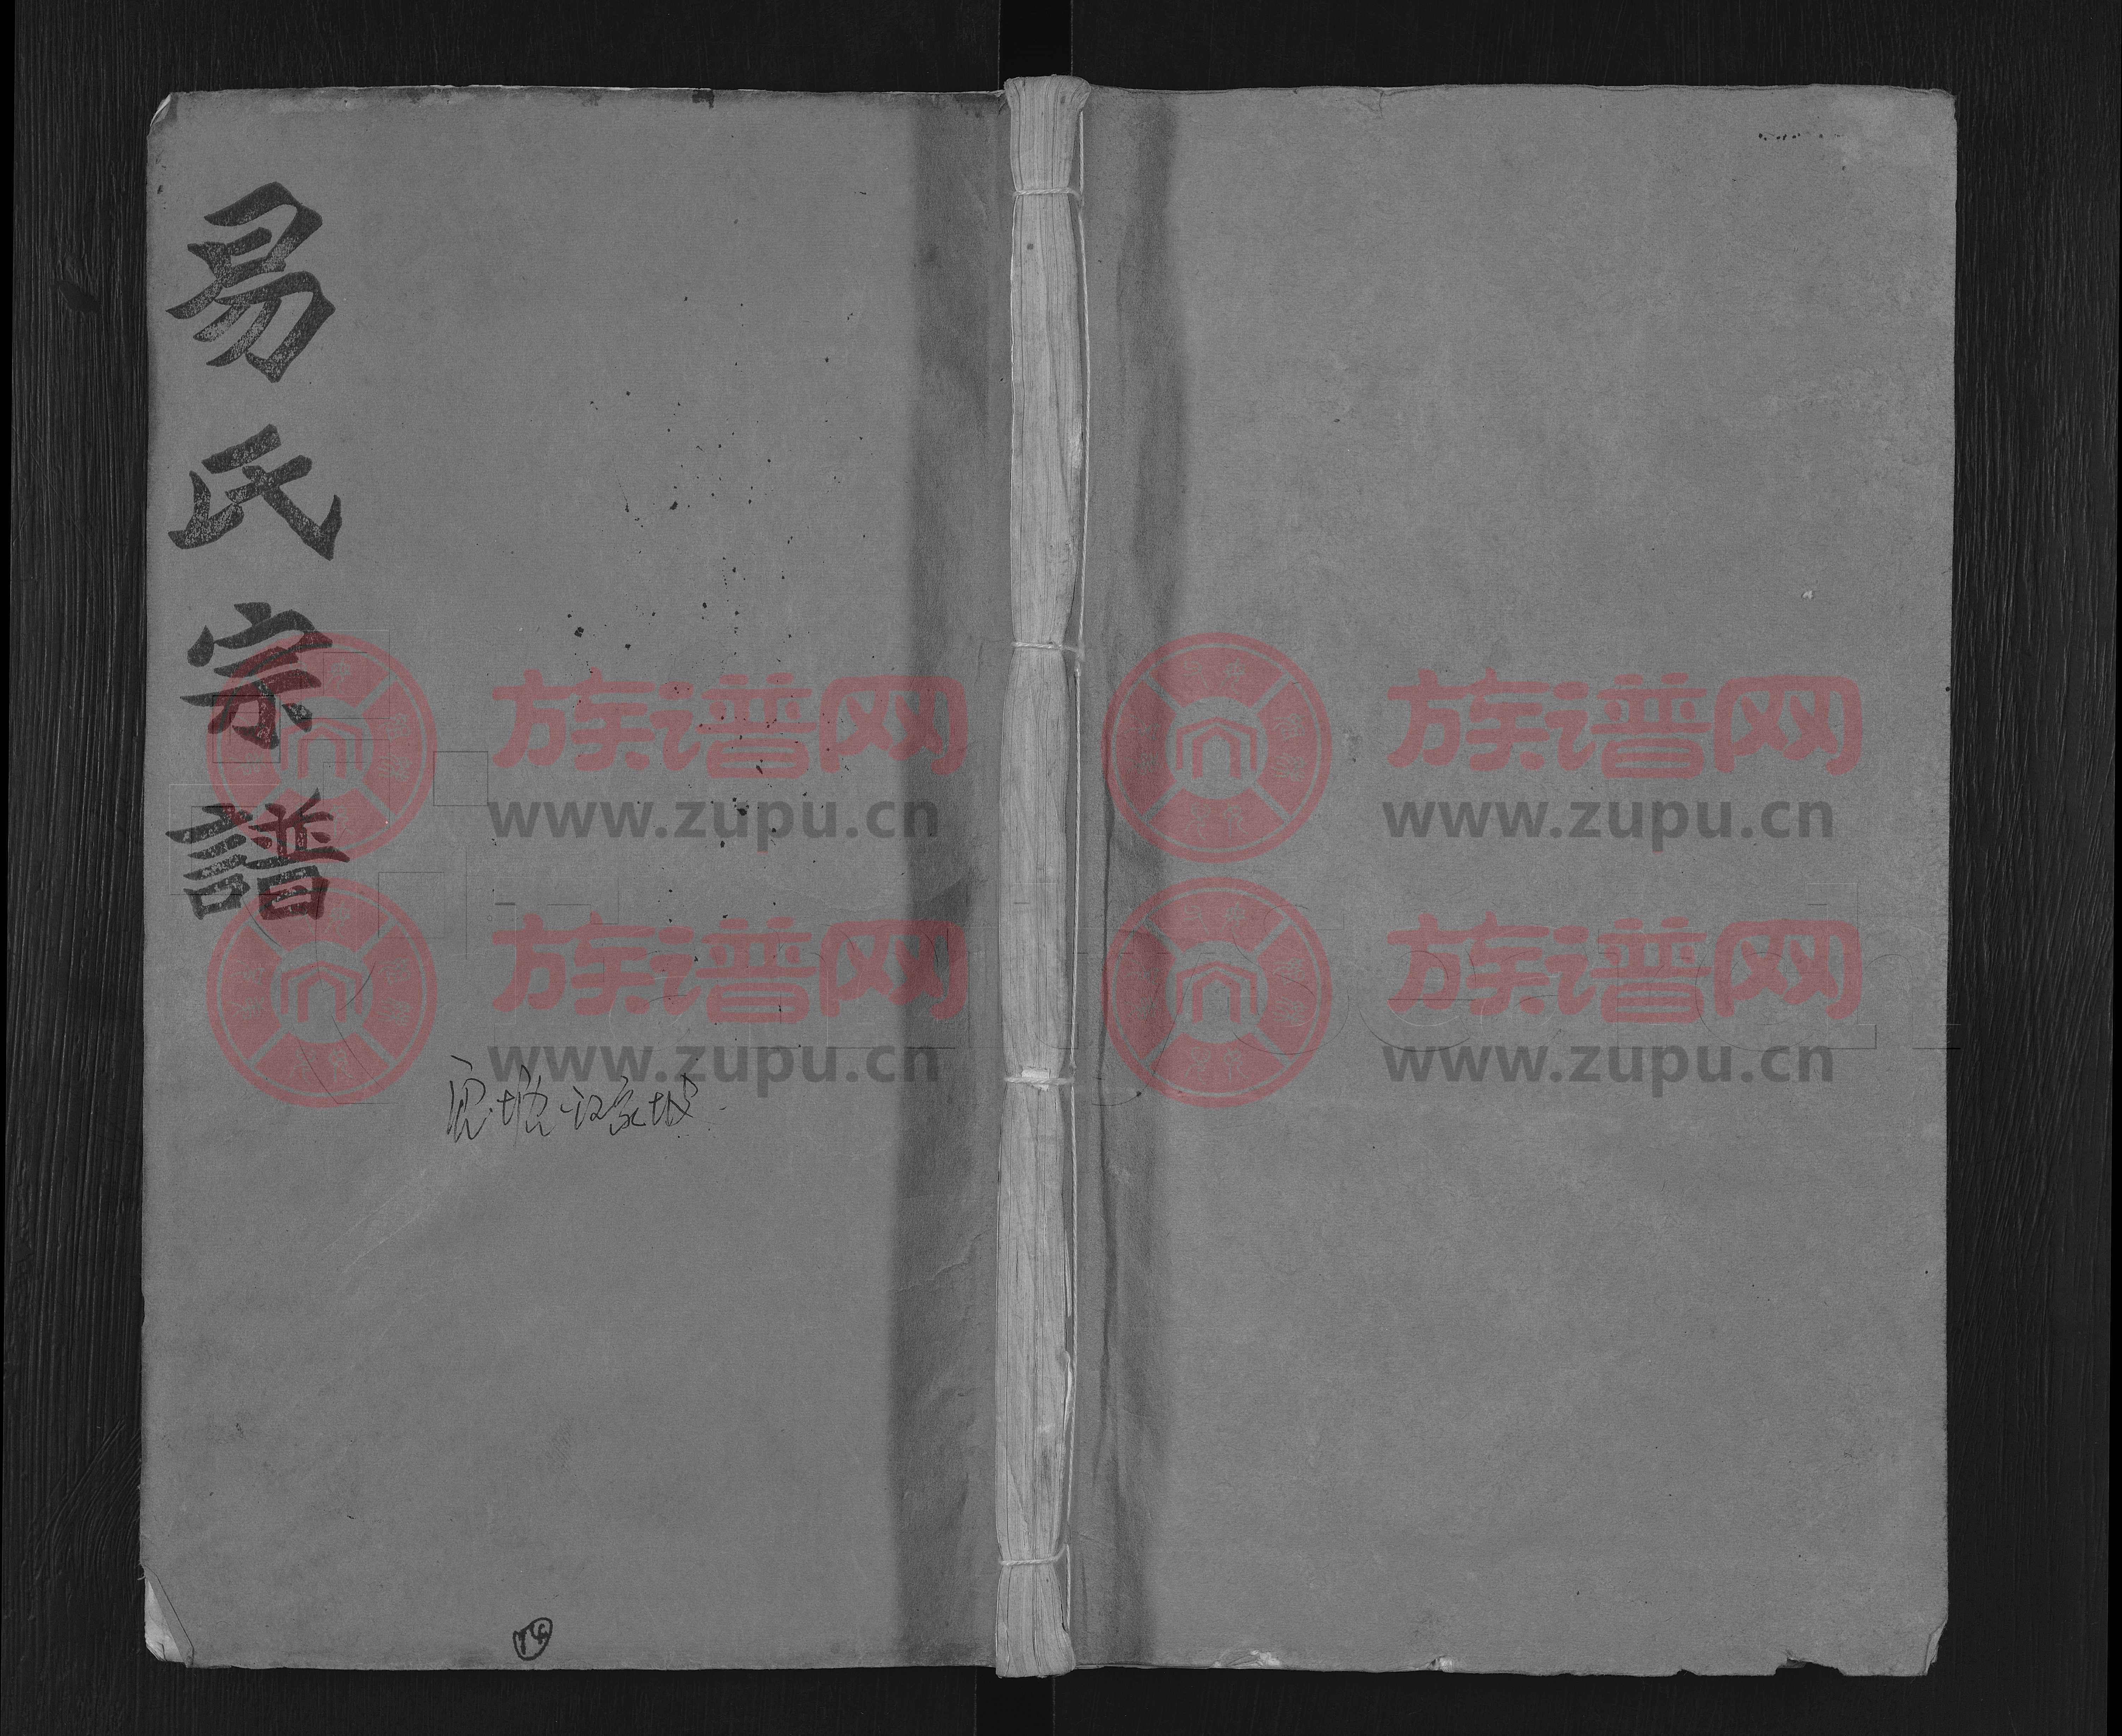 易氏宗譜
族谱网
www.zupu.cn
族谱网
www.zupu.cn
族谱网
www.zupu.cn
族谱网
www.zupu.cn